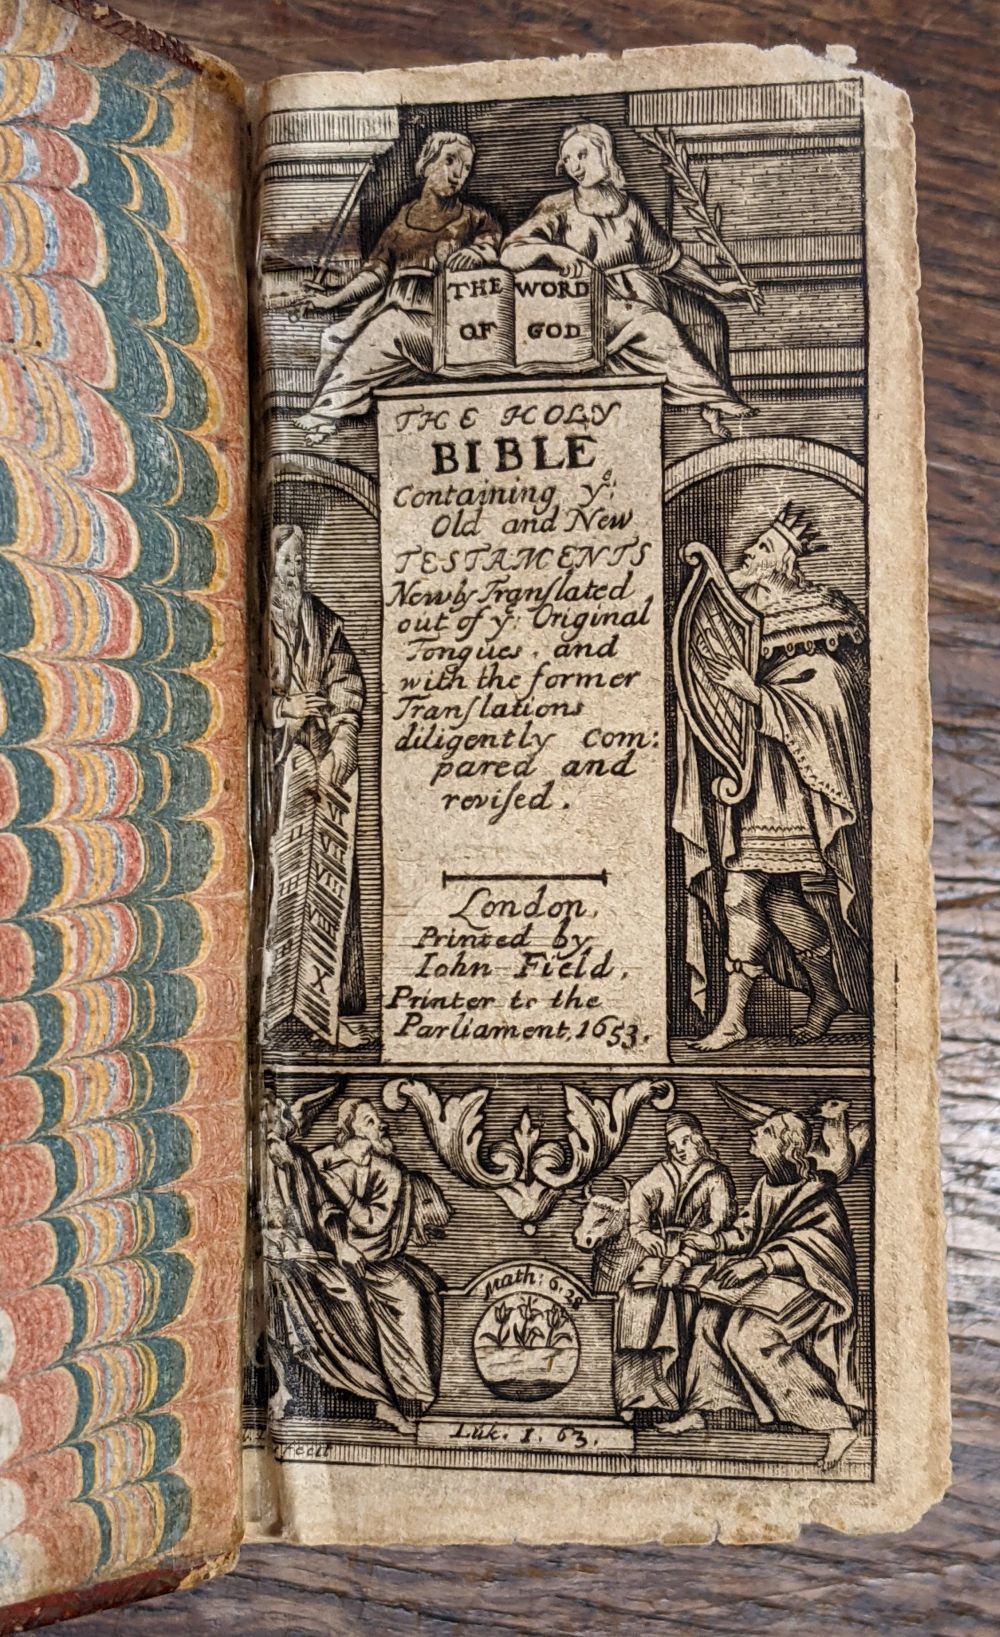 THE WORD
OF GOD
THE HOLY
BIBLE
Containing yᵉ:
Old and New
TESTAMENTS
Newly Tranſlated
out of yᵉ: Original
Tongues, and
with the former
Tranſlations
diligently com:
pared and
reviſed.
London,
Printed by
Iohn Field,
Printer to the
Parliament, 1653.
Math: 6. 28
Luk. 1. 63.
fecit